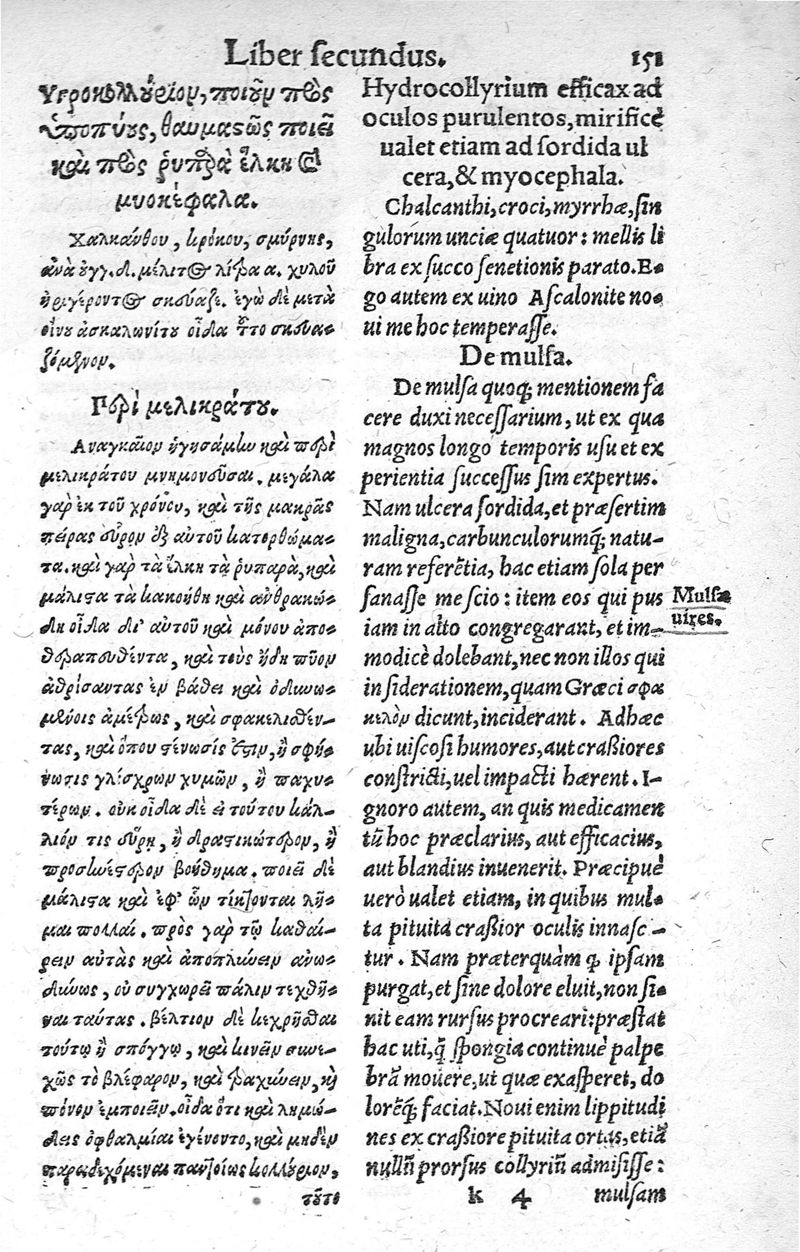 Liber secundus. 151
Υγροκολλούριον, ποιοῦν πρὸς
ὑποπύους, θαυμαστῶς ποιεῖ
καὶ πρὸς ῥυπαρὰ ἕλκη καὶ
μυοκέφαλα.
Χαλκάνθου, κρόκου, σμύρνης,
ἀνὰ ουγ. δ. μέλιτος λίτρα α. χυλοῦ
ἠριγέροντος σκεύαζε. ἐγὼ δὲ μετὰ
οἴνου ἀσκαλωνίτου οἶδα τοῦτο σκευα-
ζόμενον.
Περὶ μελικράτου.
Αναγκαῖον ἡγησάμην καὶ περὶ
μελικράτου μνημονεῦσαι. μεγάλα
γὰρ ἐκ τοῦ χρόνου, καὶ τῆς μακρᾶς
πείρας εὗρον ἐξ αὐτοῦ κατορθώμα-
τα. καὶ γὰρ τὰ ἕλκη τὰ ῥυπαρὰ, καὶ
μάλιστα τὰ κακοήθη καὶ ἀνθρακώ-
δη οἶδα δι' αὐτοῦ καὶ μόνου ἀπο-
θεραπευθέντα, καὶ τοὺς ἤδη πῦον
ἀθρίσαντας ἐν βάθει καὶ ὀδυνω-
μένοις ἀμέτρως, καὶ σφακελισθέν-
τας, καὶ ὅπου στένωσίς ἐστιν, ἢ σφή-
νωσις γλίσχρων χυμῶν, ἢ παχυ-
τέρων. οὐκ οἶδα δὲ εἰ τούτου κάλ-
λιόν τις εὕρῃ, ἢ δραστικώτερον, ἢ
προσηνέστερον βοήθημα. ποιεῖ δὲ
μάλιστα καὶ ἐφ' ὧν τίκτονται λῆ-
μαι πολλαί. πρὸς γὰρ τῷ καθαί-
ρειν αὐτὰς καὶ ἀποπλύνειν ἀνω-
δύνως, οὐ συγχωρεῖ πάλιν τεχθῆ-
ναι ταύτας. βέλτιον δὲ κεχρῆσθαι
τούτῳ ἢ σπόγγῳ, καὶ κινεῖν συνε-
χῶς τὸ βλέφαρον, καὶ τραχύνειν, καὶ
πόνον ἐμποιεῖν. οἶδα ὅτι καὶ λημώ-
δεις ὀφθαλμίαι ἐγένοντο, καὶ μηδὲν
παραδεχόμεναι παντοίως κολλύριον,
τοῦτο
Hydrocollyrium efficax ad
oculos purulentos, mirificè
ualet etiam ad sordida ul
cera, & myocephala.
Chalcanthi, croci, myrrhæ, sin
gulorum unciæ quatuor: mellis li
bra ex succo senetionis parato. E-
go autem ex uino Ascalonite no-
ui me hoc temperasse.
De mulsa.
De mulsa quoq; mentionem fa
cere duxi necessarium, ut ex qua
magnos longo temporis usu et ex
perientia successus sim expertus.
Nam ulcera sordida, et præsertim
maligna, carbunculorumq́; natu-
ram referẽtia, hac etiam sola per
sanasse me scio: item eos qui pus
iam in alto congregarant, et im-
modicè dolebant, nec non illos qui
in siderationem, quam Græci σφα
κελὸν dicunt, inciderant. Adhæc
ubi uiscosi humores, aut craßiores
constricti, uel impacti hærent. I-
gnoro autem, an quis medicamen
tũ hoc præclarius, aut efficacius,
aut blandius inuenerit. Præcipuè
uerò ualet etiam, in quibus mul-
ta pituita craßior oculis innasc-
tur. Nam præterquàm q̃ ipsam
purgat, et sine dolore eluit, non si-
nit eam rursus procreari: præstat
hac uti, q̃ spongia continuè palpe
brã mouere, ut quæ exasperet, do
lorẽq́; faciat. Noui enim lippitudi
nes ex craßiore pituita ortas, etiã
nullũ prorsus collyriũ admisisse:
k 4 mulsam
Mulsæ
uires.